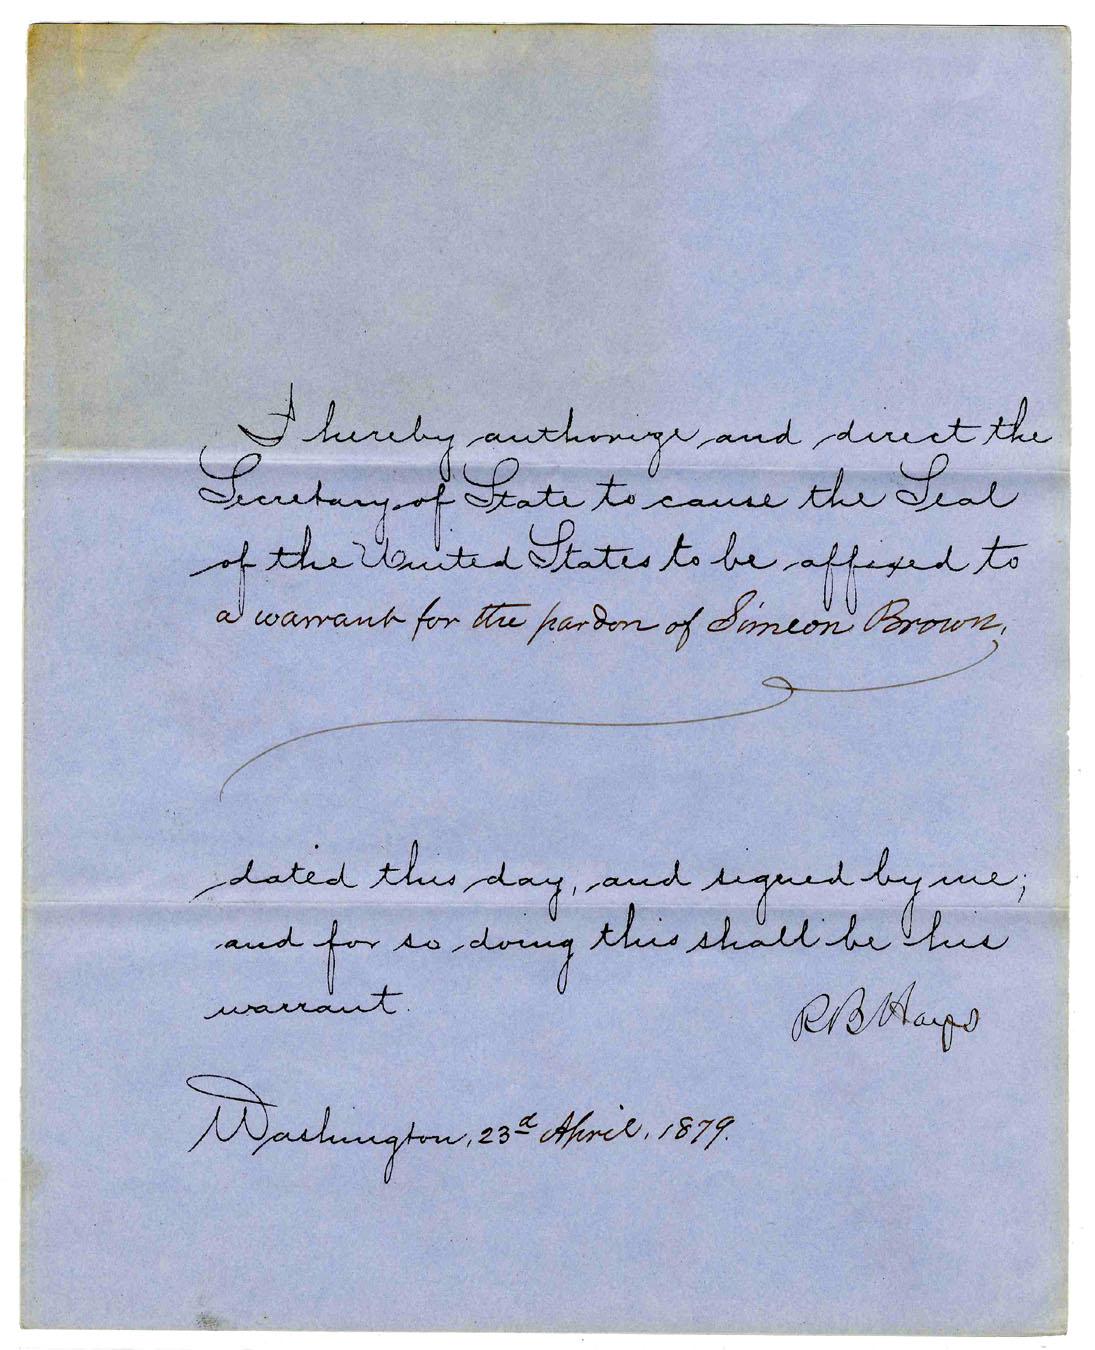 I hereby authorize and direct the
Secretary of State to cause the Seal
of the United States to be affixed to
a warrant for the pardon of Simeon Brown,
dated this day, and signed by me;
and for so doing this shall be his
warrant.
R B Hayes
Washington, 23d April, 1879.